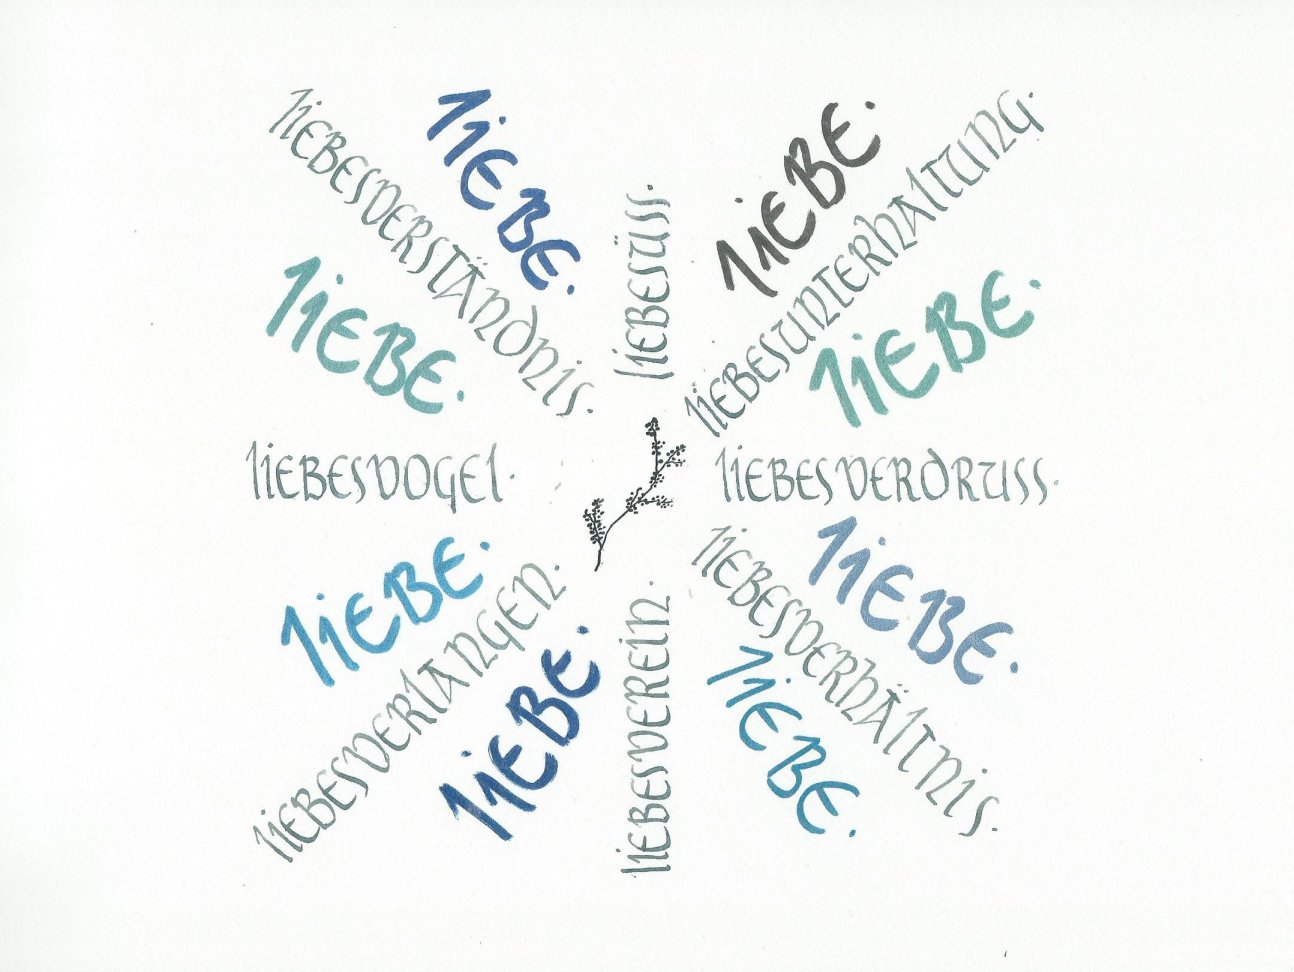 liebesverständnis.
liebe.
liebesüss.
liebe.
liebesunterhaltung.
liebe.
liebe.
liebesvogel.
liebesverdruss.
liebe.
liebesverlangen.
liebe.
liebesverein.
liebesverhältnis.
liebe.
liebe.